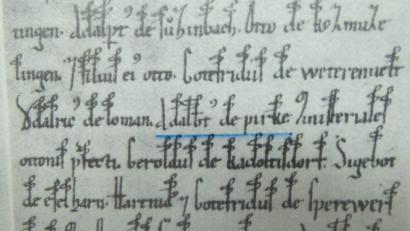 ungen. Adalpt de sůzinbach. Otto de
lingen. ⁊ filius ei' otto. Gotefridus de weterenuelt
Ŏdalric' de loman. Adalbt' de pirke
ottonis pfecti. Beroldus de kadoltisdorf. Sigebot
de eselharn. Hartnid ⁊ Gotefridus de sperewers